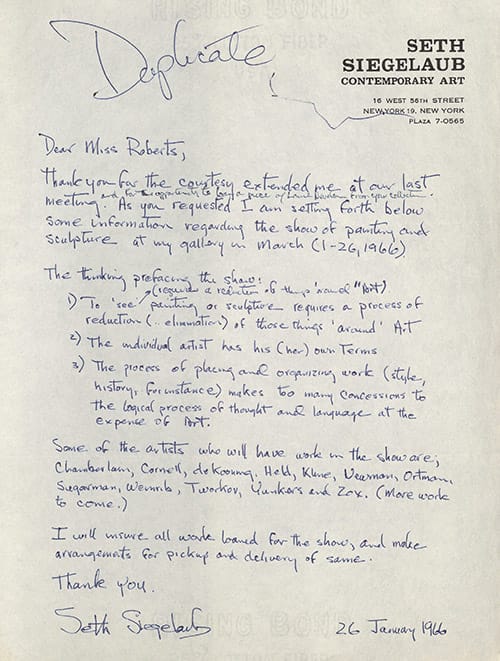 Duplicate
SETH
SIEGELAUB
CONTEMPORARY ART
16 WEST 56TH STREET
NEW YORK 19, NEW YORK
PLAZA 7-0565
Dear Miss Roberts,
Thank you for the courtesy extended me at our last
and for the opportunity to borrow a piece of from your collection.
meeting. As you requested I am setting forth below
some information regarding the show of painting and
sculpture at my gallery in March (1-26, 1966)
The thinking prefacing the show:
(requires a reduction of things 'around' "Art)
1) To 'see' painting or sculpture requires a process of
reduction (.. elimination) of those things 'around' Art
2) The individual artist has his (her) own Terms
3) The process of placing and organizing work (style,
history, for instance) makes too many concessions to
the logical process of thought and language at the
expense of Art.
Some of the artists who will have work in the show are;
Chamberlain, Cornell, deKooning, Held, Kline, Newman, Ortman,
Sugarman, Weinrib, Tworkov, Yunkers and Zox. (More work
to come.)
I will insure all work loaned for the show, and make
arrangements for pickup and delivery of same.
Thank you.
Seth Siegelaub
26 January 1966